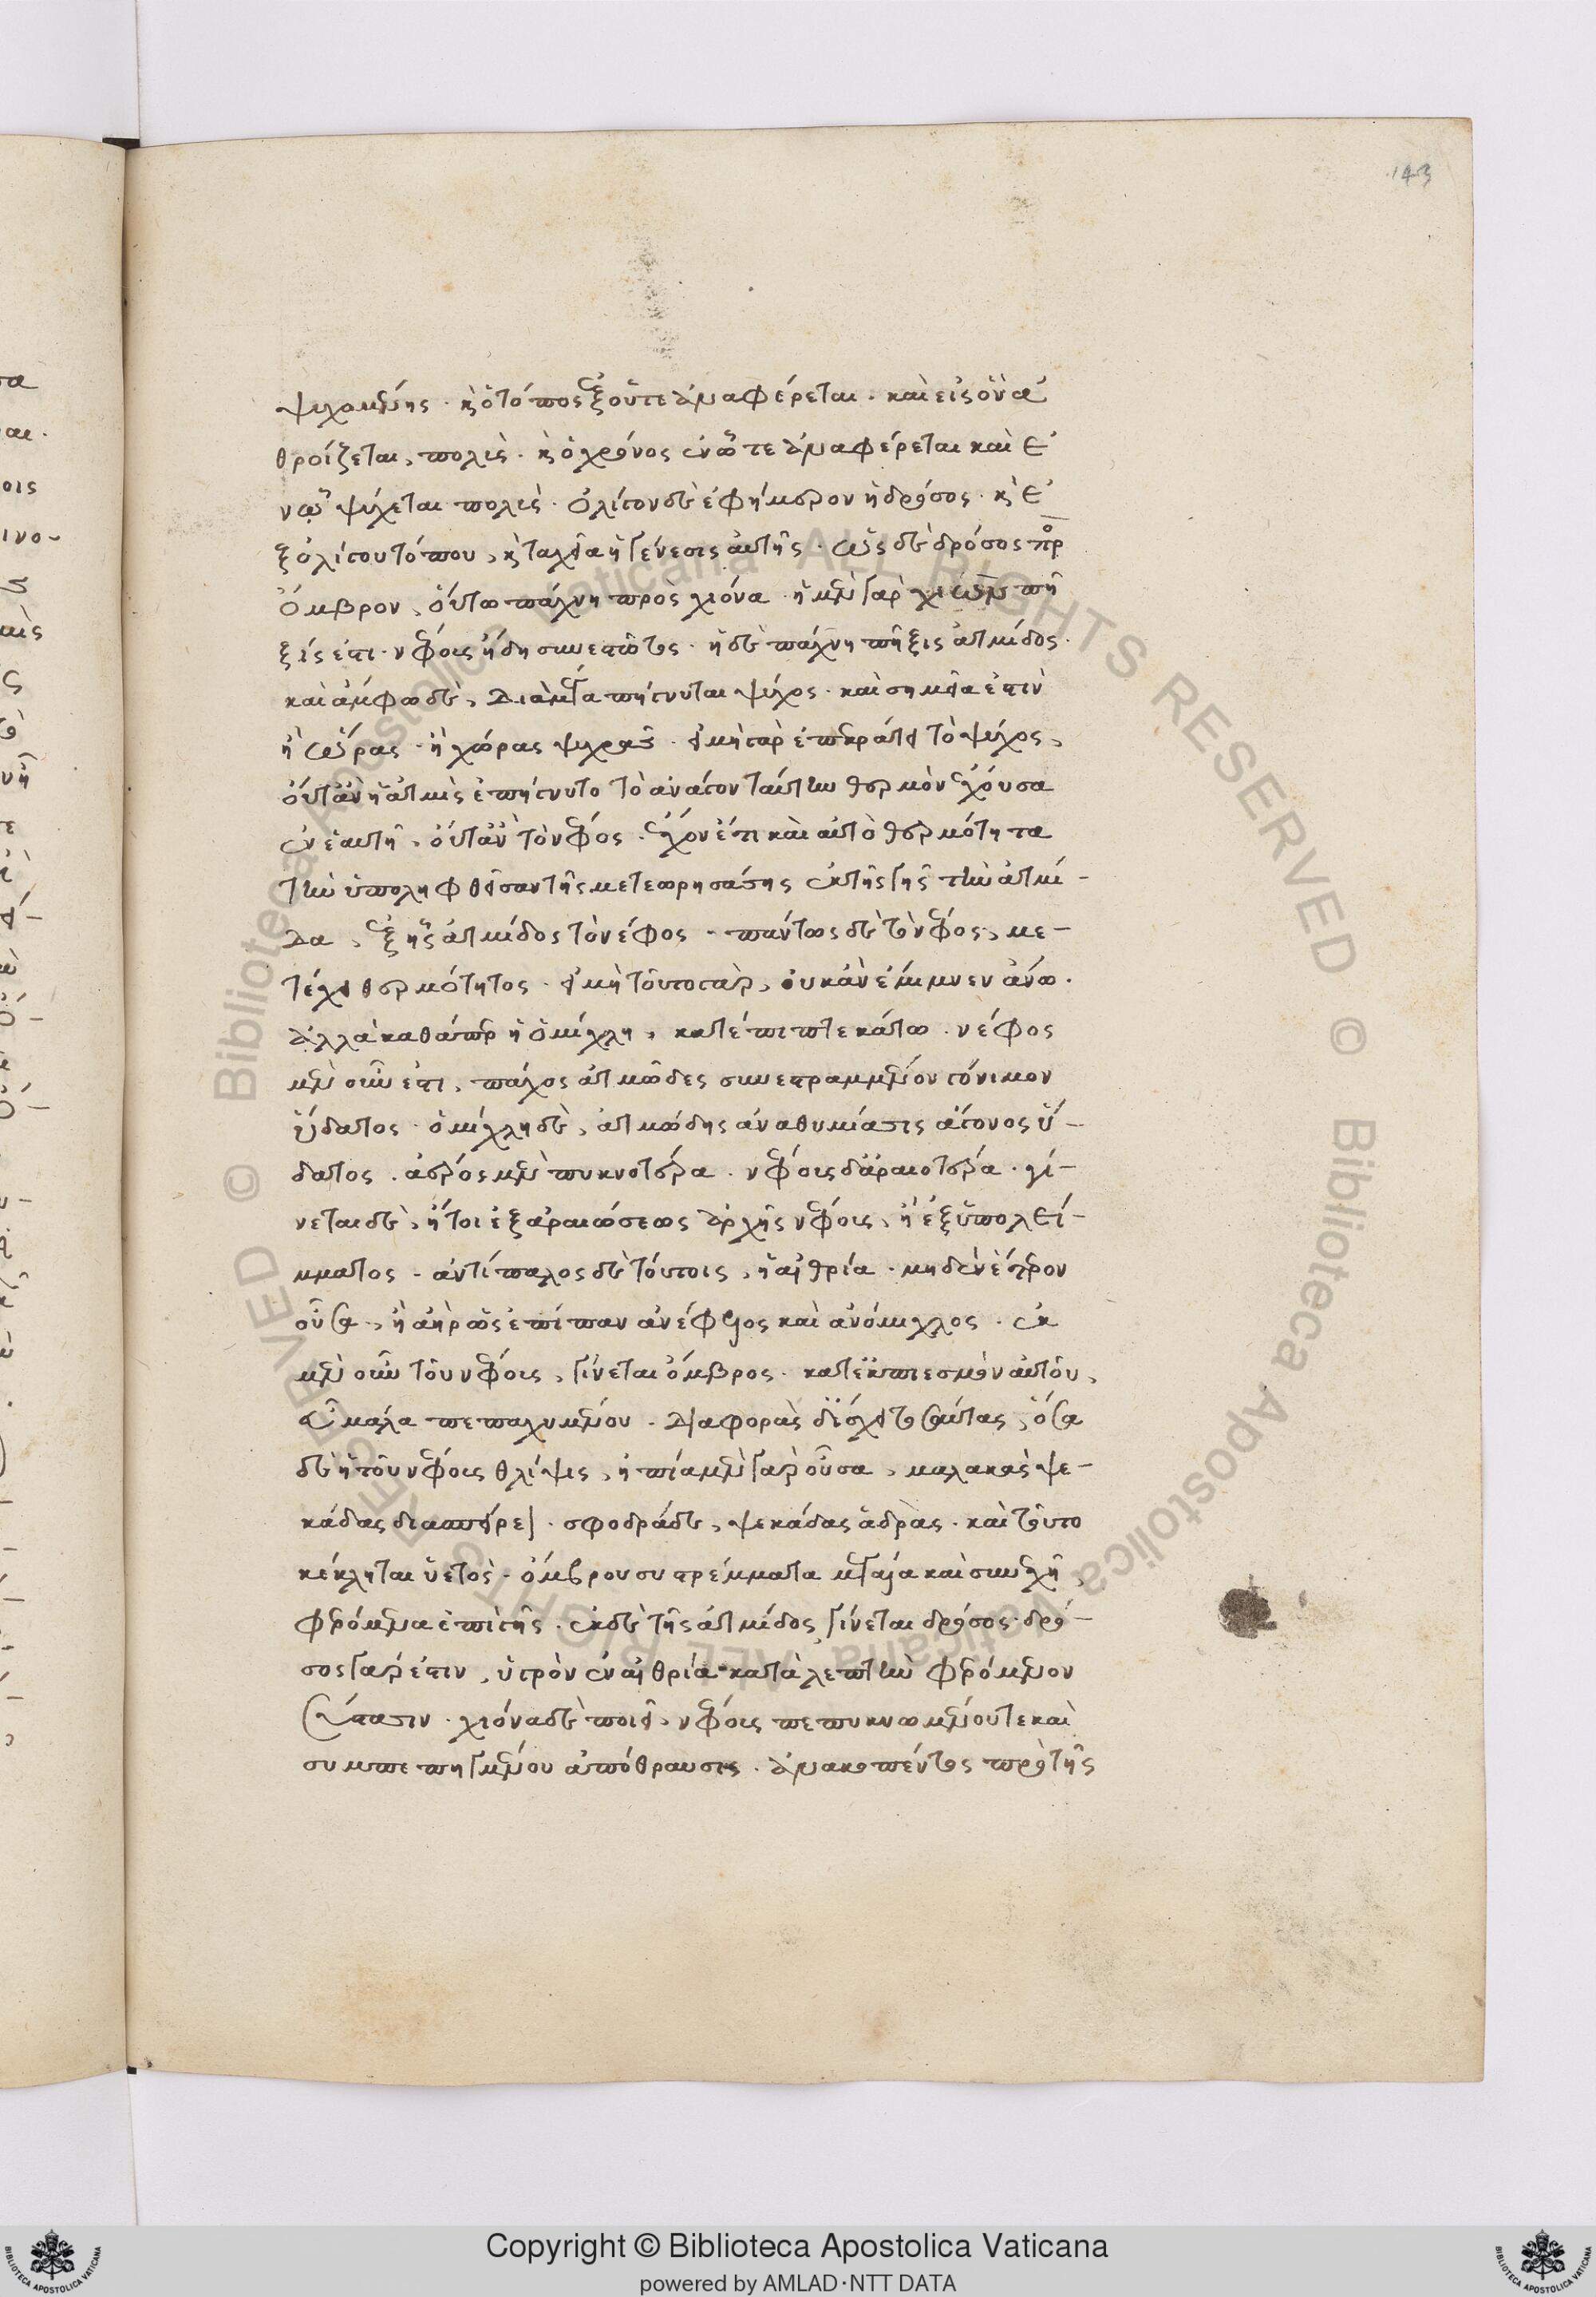 143
ψυχομένης · κ̀ ὁ τόπος ἐξ οὗτε ἀναφέρεται · καὶ εἰς ὃν ἀ
θροίζεται, πολὺς · κ̀ ὁ χρόνος ἐν ᾧ τε ἀναφέρεται καὶ ἐ
ν ᾧ ψύχεται πολὺς · ὀλίγον δὲ ἐφήμερον ἡ δρόσος · κ̀ ἐ
ξ ὀλίγου τόπου, κ̀ ταχεῖα ἡ γένεσις αὐτῆς · ὡς δὲ δρόσος πρ
ὄμβρον, οὕτω πάχνη πρὸς χιόνα · ἡ μὲν γὰρ χιὼν πῆ
ξίς ἐστι νέφους ἤδη συνεστῶτος · ἡ δὲ πάχνη πῆξις ἀτμίδος ·
καὶ ἄμφω δὲ, διὰ μέγα πήγνυται ψύχος · καὶ σημεῖα ἐστὶν
ἢ ὥρας · ἢ χώρας ψυχρᾶς · εἰ μὴ γὰρ ἐπεκράτει τὸ ψύχος,
οὔτ' ἂν ἡ ἀτμὶς ἐπήγνυτο τὸ ἀνάγον ταύτην θερμὸν ἔχουσα
ἐν ἑαυτῇ, οὔτ' ἂν τὸ νέφος · ἔχον ἔτι καὶ αὐτὸ θερμότητα
τὴν ὑποληφθεῖσαν τῆς μετεωρησάσης ἐκ τῆς γῆς τὴν ἀτμί-
δα, ἐξ ἧς ἀτμίδος τὸ νέφος · πάντως δὲ τὸ νέφος, με-
τέχει θερμότητος · εἰ μὴ τοῦτο γὰρ, οὐκ ἂν ἔμιμνεν ἄνω ·
ἀλλὰ καθάπερ ἡ ὁμίχλη, κατέπιπτε κάτω · νέφος
μὲν οὖν ἐστι, πάχος ἀτμῶδες συνεστραμμένον γόνιμον
ὕδατος · ὁμίχλη δὲ, ἀτμώδης ἀναθυμίασις ἄγονος ὕ-
δατος · ἀέρος μὲν πυκνοτέρα · νέφους δ' ἀραιοτέρα · γί-
νεται δὲ, ἤτοι ἐξ ἀραιώσεως ἀρχῆς νέφους, ἢ ἐξ ὑπολεί-
μματος · ἀντίπαλος δὲ τούτοις, ἡ αἰθρία · μηδὲν ἕτερον
οὖσα, ἢ ἀὴρ ὡς ἐπίπαν ἀνέφελος καὶ ἀνόμιχλος · ἐκ
μὲν οὖν τοῦ νέφους, γίνεται ὄμβρος · κατ' ἐκπιεσμὸν αὐτοῦ,
εὖ μάλα πεπαχυμένου · διαφορὰς δ' ἴσχει τοσαύτας, ὅσα
δὲ ἡ τοῦ νέφους θλίψις, ἠπία μὲν γὰρ οὖσα, μαλακὰς ψε-
κάδας διασπείρει · σφοδρὰ δὲ, ψεκάδας ἁδρὰς · καὶ τοῦτο
κέκληται ὑετὸς · ὄμβρου συστρέμματα μεγάλα καὶ συνεχῆ,
φερόμενα ἐπὶ γῆς · ἐκ δὲ τῆς ἀτμίδος γίνεται δρόσος · δρό-
σος γάρ ἐστιν, ὑγρὸν ἐν αἰθρίᾳ κατὰ λεπτὴν φερόμενον
σύστασιν · χιόνα δὲ ποιεῖ, νέφους πεπυκνωμένου τε καὶ
συμπεπηγμένου ἀπόθραυσις · ἀνακοπέντος πρὸ τῆς
Copyright © Biblioteca Apostolica Vaticana
powered by AMLAD·NTT DATA